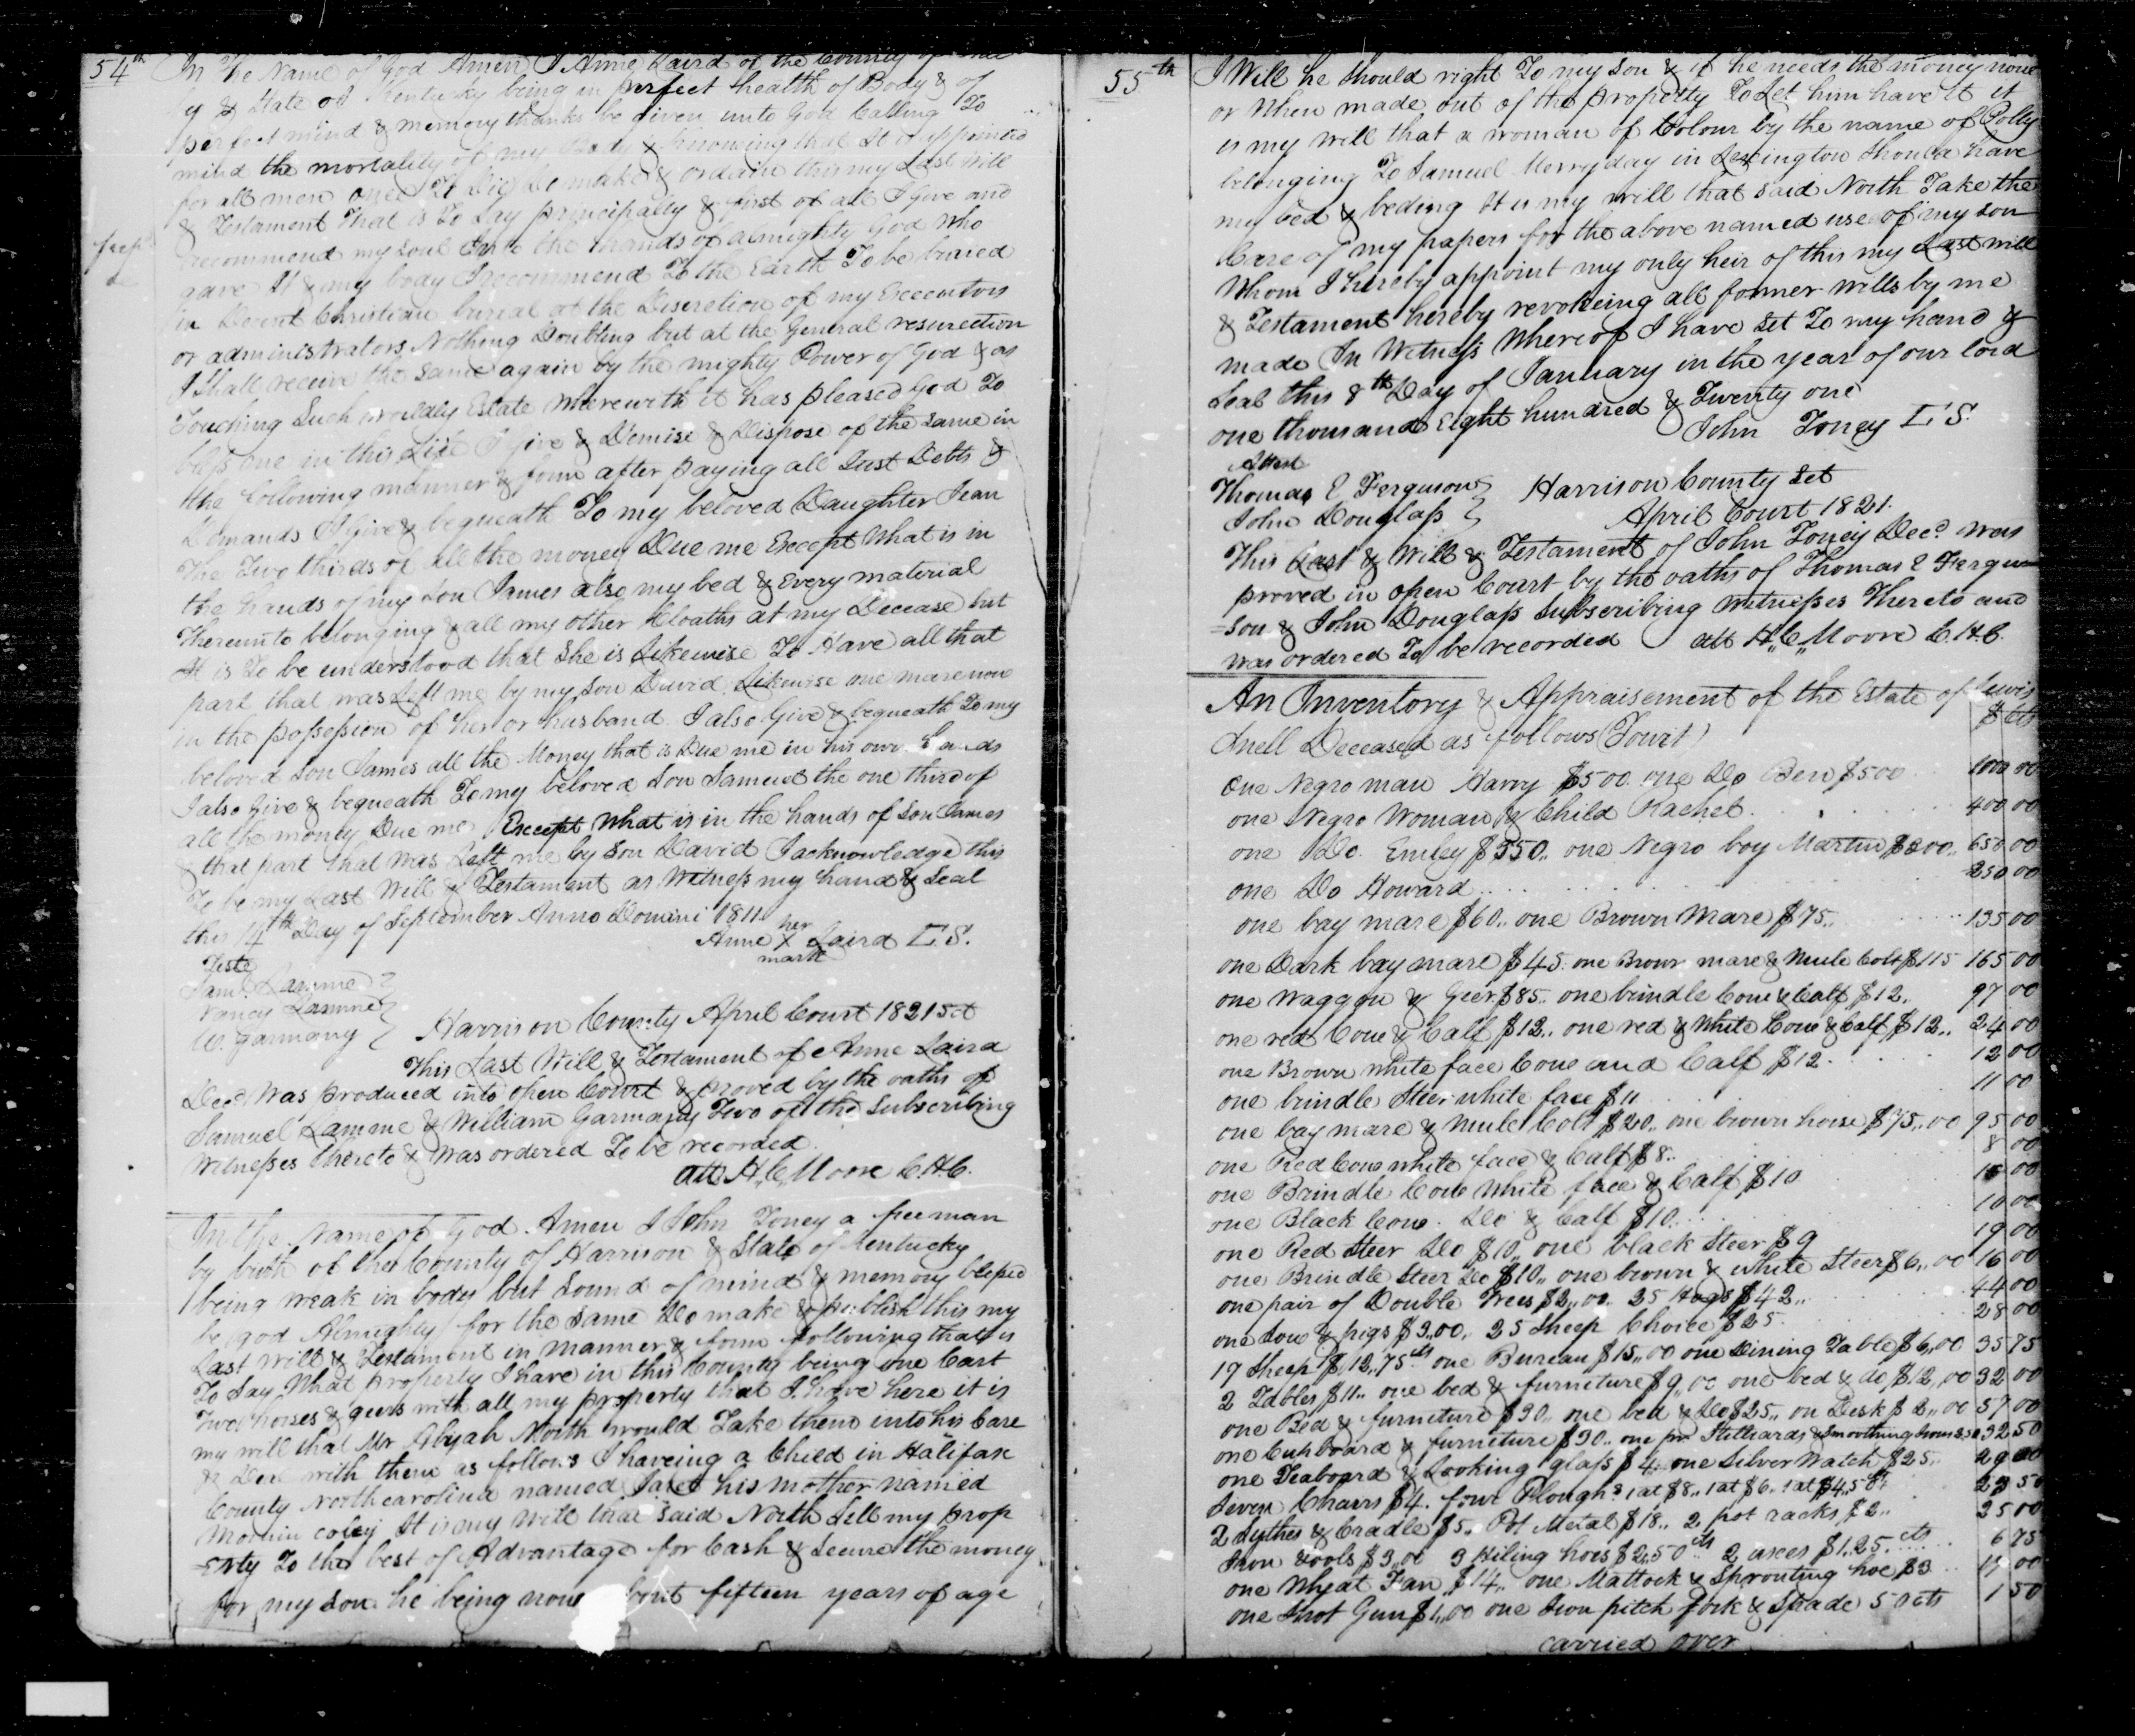 54th
In The Name of God Amen I Anne Laird of the County of
& State of Kentucky being in perfect health of Body & of
perfect mind & memory thanks be given unto God Calling To
mind the mortality of my Body & Knowing that It is appointed
for all men once To Die Do make & ordain this my Last Will
& Testament That is To Say principally & first of all I give and
recommend my soul Into the hands of almighty God who
gave It & my body I recommend To the Earth To be buried
in Decent Christian burial at the Discretion of my Executors
or administrators Nothing Doubting but at the General resurection
I Shall receive the same again by the mighty Power of God & as
Touching Such worldly Estate wherewith it has pleased God To
bless me in this Life I Give & Demise & Dispose of the Same in
the following manner & form after paying all Just Debts &
Demands I Give & bequeath To my beloved Daughter Jean
The Two thirds of all the money Due me Except What is in
the hands of my Son James also my bed & Every material
Thereunto belonging & all my other Cloaths at my Decease but
It is To be understood that She is Likewise To Have all that
part that was Left me by my Son David Likewise one mare now
in the possession of her or husband I also Give & bequeath To my
beloved Son James all the Money that is Due me in his own hands
I also Give & bequeath To my beloved Son Samuel the one third of
all the money Due me Except What is in the hands of Son James
& that part that was Left me by Son David I acknowledge this
To be my Last Will & Testament as Witness my hand & Seal
this 14th Day of September Anno Domini 1811
her
Anne X Laird L S.
mark
Teste
Saml. Lamme
Nancy Lamme
W. Garmany
Harrison County April Court 1821 Sct
This Last Will & Testament of Anne Laird
Decd Was produced into open Court & proved by the oaths of
Samuel Lamme & William Garmany Two of the Subscribing
Witnesses thereto & was ordered To be recorded
att H,,C,,Moore C.H.C.
In the Name of God Amen I John Toney a freeman
by birth of the County of Harrison & State of Kentucky
being weak in body but Sound of mind & memory blessed
be god Almighty for the Same Do make & publish this my
Last Will & Testament in manner & form following that is
To Say What property I have in this County being one Cart
Two horses & geers with all my property that I have here it is
my will that Mr Abijah North would Take them into his Care
& Deal with them as follows I haveing a Child in Halifax
County North carolina named his mother named
It is my Will that said North Sell my prop
=erty To the best of Advantage for Cash & Secure the money
for my Son he being now about fifteen years of age
55th
I Will he should right To my Son & if he needs the money now
or When made out of the property To Let him have it it
is my will that a woman of Colour by the name of Polly
belonging To Samuel Merryday in Lexington Should have
my bed & beding It is my will that said North Take the
Care of my papers for the above named use of my son
Whom I hereby appoint my only heir of this my Last will
& Testament hereby revokeing all former wills by me
made In Witness Whereof I have Set To my hand &
Seal this 8th Day of January in the year of our lord
one thousand Eight hundred & Twenty one
John Toney L S.
Attest
Thomas E Ferguson
John Douglass
Harrison County Set
April Court 1821.
This Last & Will & Testament of John Toney Decd. was
proved in open Court by the oaths of Thomas E Fergu
=son & John Douglass Subscribing Witnesses Thereto and
was ordered To be recorded att H,,C,,Moore C.H.C.
An Inventory & Appraisement of the Estate of Lewis
Snell Deceased as follows (Towit) $ cts
One Negro man Harry $500 one Do Ben $500 1000 00
one Negro Woman & Child Rachel 400 00
one Do. Emiley $350,, one Negro boy Martin $300,, 650 00
one Do Howard 250 00
one bay mare $60,, one Brown Mare $75,, 135 00
one Dark bay mare $45 one Brown mare & Mule Colt $115 165 00
one waggon & Geer $85,, one brindle Cow & Calf $12,, 97 00
one red Cow & Calf $12,, one red & White Cow & Calf $12,, 24 00
one Brown white face Cow and Calf $12 12 00
one brindle Steer white face $11 11 00
one bay mare & Mule Colt $20,, one brown horse $75,,00 95 00
one Red Cow white face & Calf $8,, 8 00
one Brindle Cow White face & Calf $10 10 00
one Black Cow Do & Calf $10 10 00
one Red Steer Do $10,, one black Steer $9 19 00
one Brindle Steer Do $10,, one brown & white Steer $6,,00 16 00
one pair of Double Trees $2,,00 25 Hogs $42,, 44 00
one Sow & pigs $3,,00,, 25 Sheep Choice $25 28 00
17 Sheep $12,,75cts one Bureau $15,,00 one Dining Table $6,,00 35 75
2 Tables $11,, one bed & furniture $9,,00 one bed & do $12,,00 32 00
one Bed & furniture $30,, one bed & Do $25,, on Desk $2,,00 57 00
one Cupboard & furniture $30,, one pr Stilliards & Smoothing Irons 2,50 32 50
one Teaboard & Looking glass $4,, one Silver Watch $25,, 29 00
Seven Chairs $4. four Ploughs 1 at $8,, 1 at $6,, 1 at $4,,50cts 50
2 Sythes & Cradle $5,, Pot Metal $18,, 2 pot racks $2,, 25 00
Iron tools $3,,00 3 Hiling hoes $2,50cts 2 axes $1,,25 cts 6 75
one Wheat Fan $14,, one Mattock & Sprouting hoe $3 17 00
one Shot Gun $1,,00 one Iron pitch fork & Spade 50cts 1 50
carried over